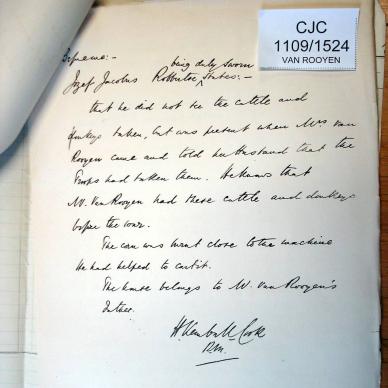 CJC
1109/1524
VAN ROOYEN
Before :-
being duly sworn
Jozef Jacobus States :-
that he did not see the cattle and
donkeys taken, but was present when Mrs van
Rooyen came and told her Husband that the
troops had taken them. He knows that
W. Van Rooyen had these cattle and donkeys
before the war.
The corn was burnt close to the machine
He had helped to cart it.
The house belongs to W. van Rooyen's
father.
H. Kemball Cook
R.M.